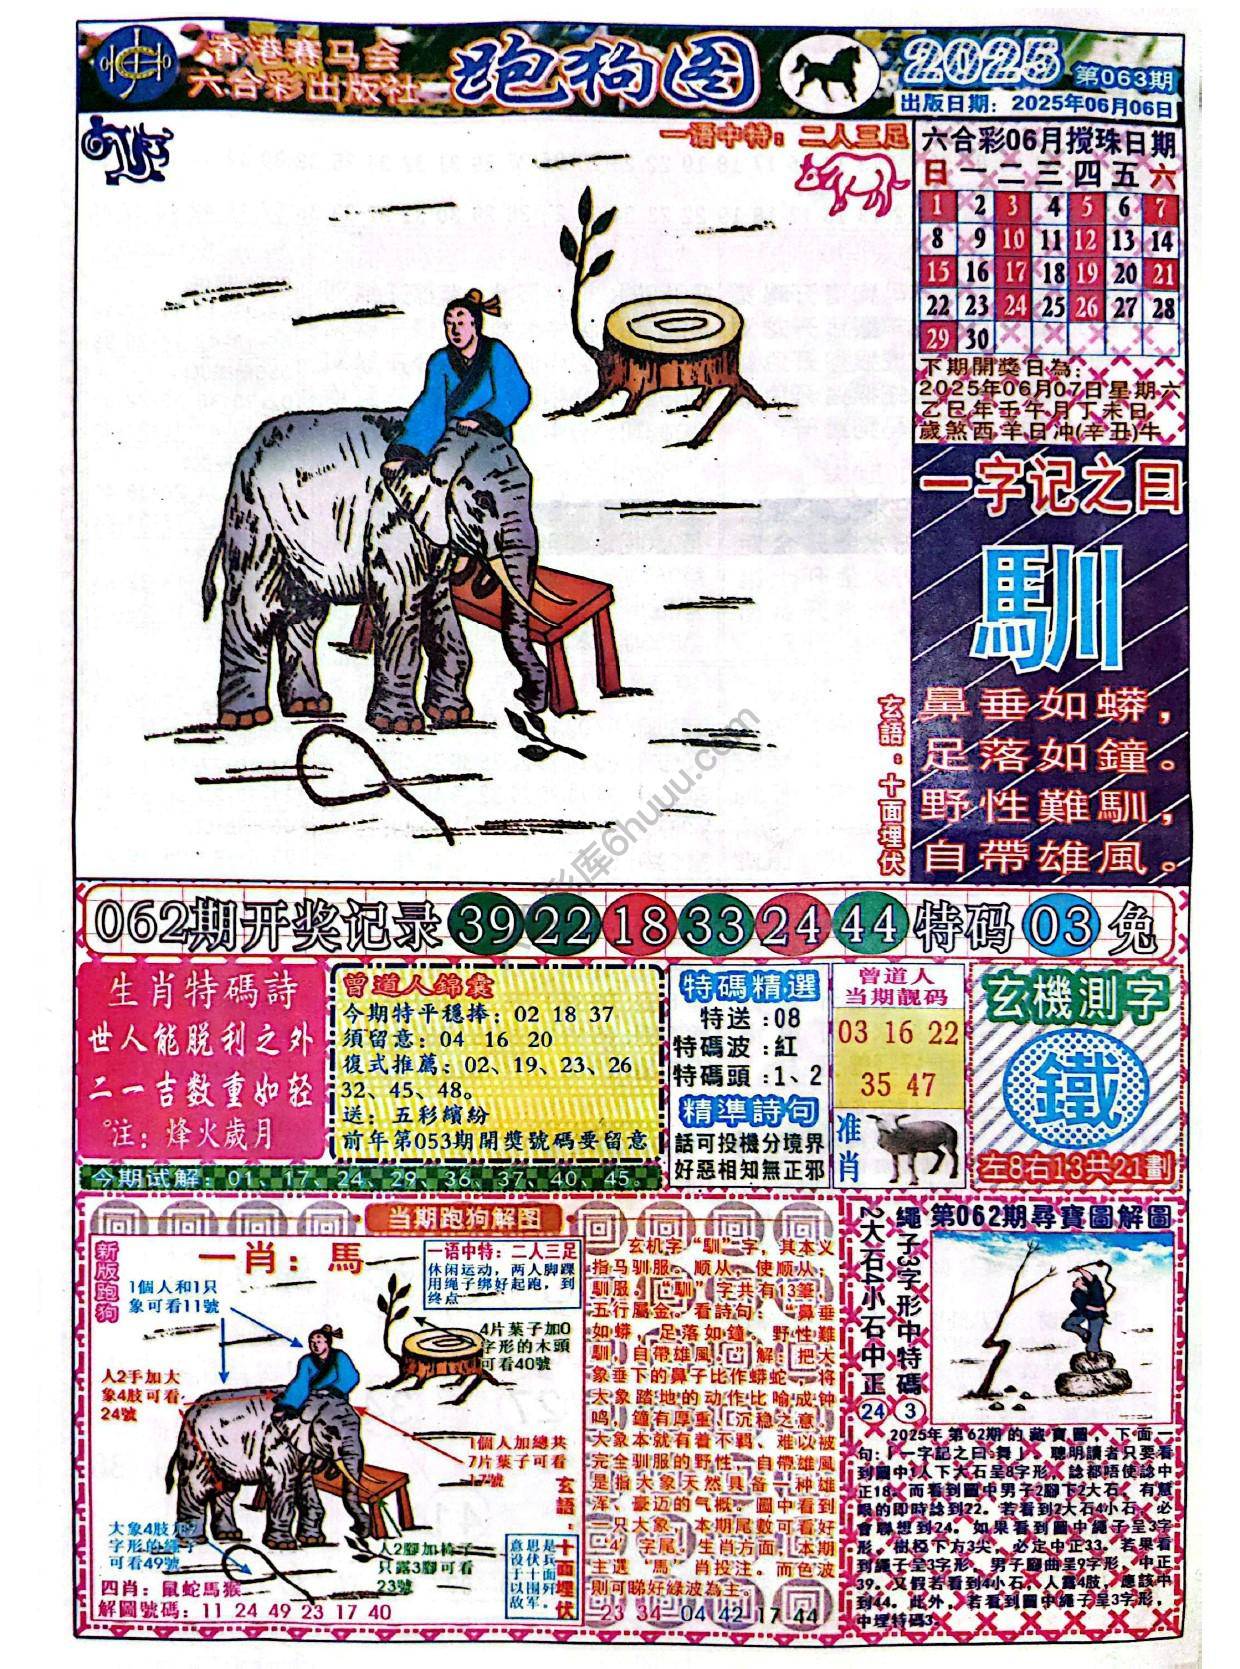 香港赛马会
六合彩出版社
跑狗图
2025
第063期
出版日期：2025年06月06日
一语中特：二人三足
六合彩06月搅珠日期
日 一 二 三 四 五 六
1 2 3 4 5 6 7
8 9 10 11 12 13 14
15 16 17 18 19 20 21
22 23 24 25 26 27 28
29 30
下期開獎日為：
2025年06月07日星期六
乙巳年壬午月丁未日
歲煞西 羊日冲(辛丑)牛
一字记之曰
馴
鼻垂如蟒，
足落如鐘。
野性難馴，
自帶雄風。
玄語：十面埋伏
062期开奖记录 39 22 18 33 24 44 特码 03 兔
生肖特碼詩
世人能脱利之外
二一吉数重如轻
注：烽火歲月
曾道人錦囊
今期特平穩捧：02 18 37
須留意：04 16 20
復式推薦：02、19、23、26
32、45、48。
送：五彩繽紛
前年第053期開獎號碼要留意
今期试解：01、17、24、29、36、37、40、45。
特碼精選
特送：08
特碼波：紅
特碼頭：1、2
精準詩句
話可投機分境界
好惡相知無正邪
曾道人
当期靓码
03 16 22
35 47
准肖
玄機測字
鐵
左8右13共21劃
当期跑狗解图
新版跑狗
一肖：馬
一语中特：二人三足
休闲运动，两人脚踝
用绳子绑好起跑，到
终点
1個人和1只
象可看11號
4片葉子加0
字形的木頭
可看40號
人2手加大
象4肢可看
24號
1個人加總共
7片葉子可看
17號
大象4肢加9
字形的繩子
可看49號
人2腳加椅子
只露3腳可看
23號
玄語：十面埋伏
意思是
设伏兵
于十面
以围歼
敌军。
四肖：鼠蛇馬猴
解圖號碼：11 24 49 23 17 40
玄机字“馴”字，其本义
指马驯服。顺从，使顺从；
馴服。“馴”字共有13筆，
五行屬金。看詩句：“鼻垂
如蟒，足落如鐘。野性難
馴，自帶雄風。”解：把大
象垂下的鼻子比作蟒蛇，将
大象踏地的动作比喻成钟
鸣，鐘有厚重、沉稳之意。
大象本就有着不羁、难以被
完全馴服的野性，自帶雄風
是指大象天然具备一种雄
浑、豪迈的气概。圖中看到
一只大象，本期尾數可看好
“4”字尾。生肖方面，本期
主選“馬”肖投注。而色波
則可睇好綠波為主。
23 34 04 42 17 44
第062期尋寶圖解圖
繩子3字形中特碼3
2大石4小石中正24
2025年第62期的藏寶圖，下面一
句：「一字記之曰：舞」，聰明讀者只要看
到圖中1人下大石呈8字形，諗都唔使諗中
正18。而看到圖中男子2腳下2大石，有慧
眼的即時諗到22。若看到2大石4小石，必
會聯想到24。如果看到圖中繩子呈3字
形，樹椏下方3尖，必定中正33。若果看
到繩子呈3字形，男子腳曲呈9字形，中正
39。又假若看到4小石，人露4肢，應該中
到44。此外，若看到圖中繩子呈3字形，
中埋特碼3。
彩库6huuu.com